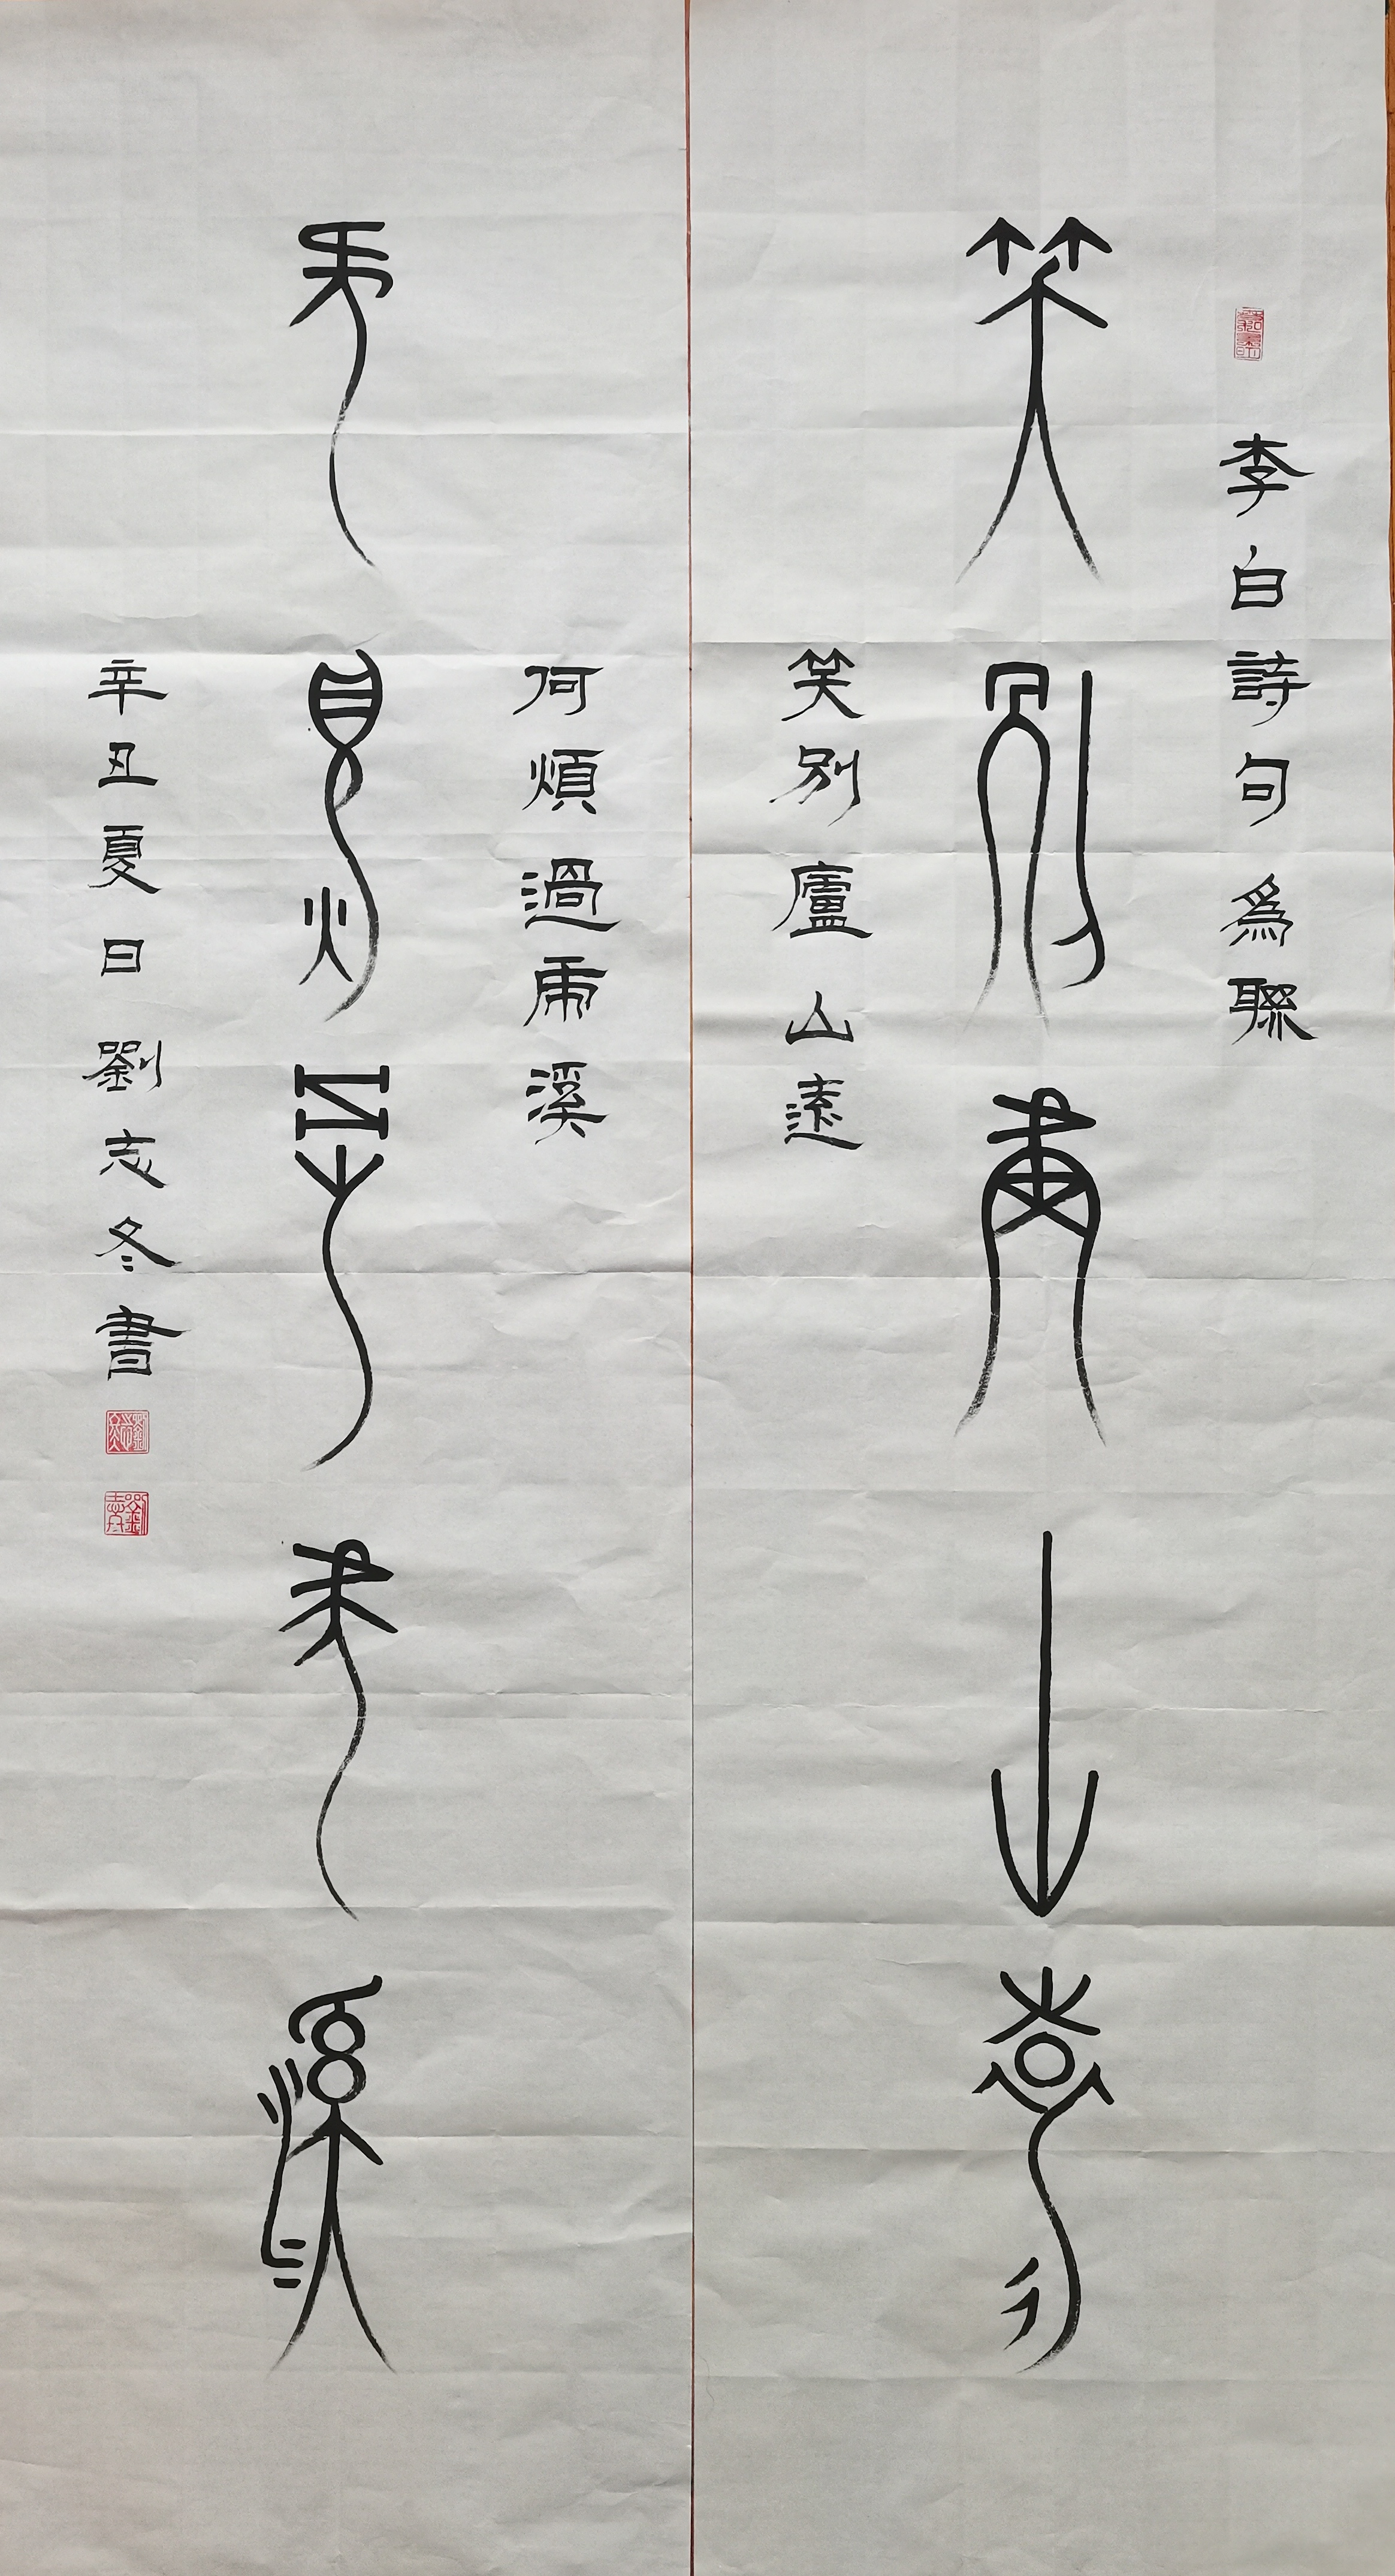 李白詩句為聯
笑別廬山遠
笑別廬山遠
何煩過虎溪
何煩過虎溪
辛丑夏日劉志冬書